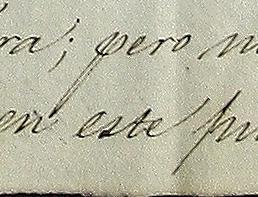 ra; pero
en este